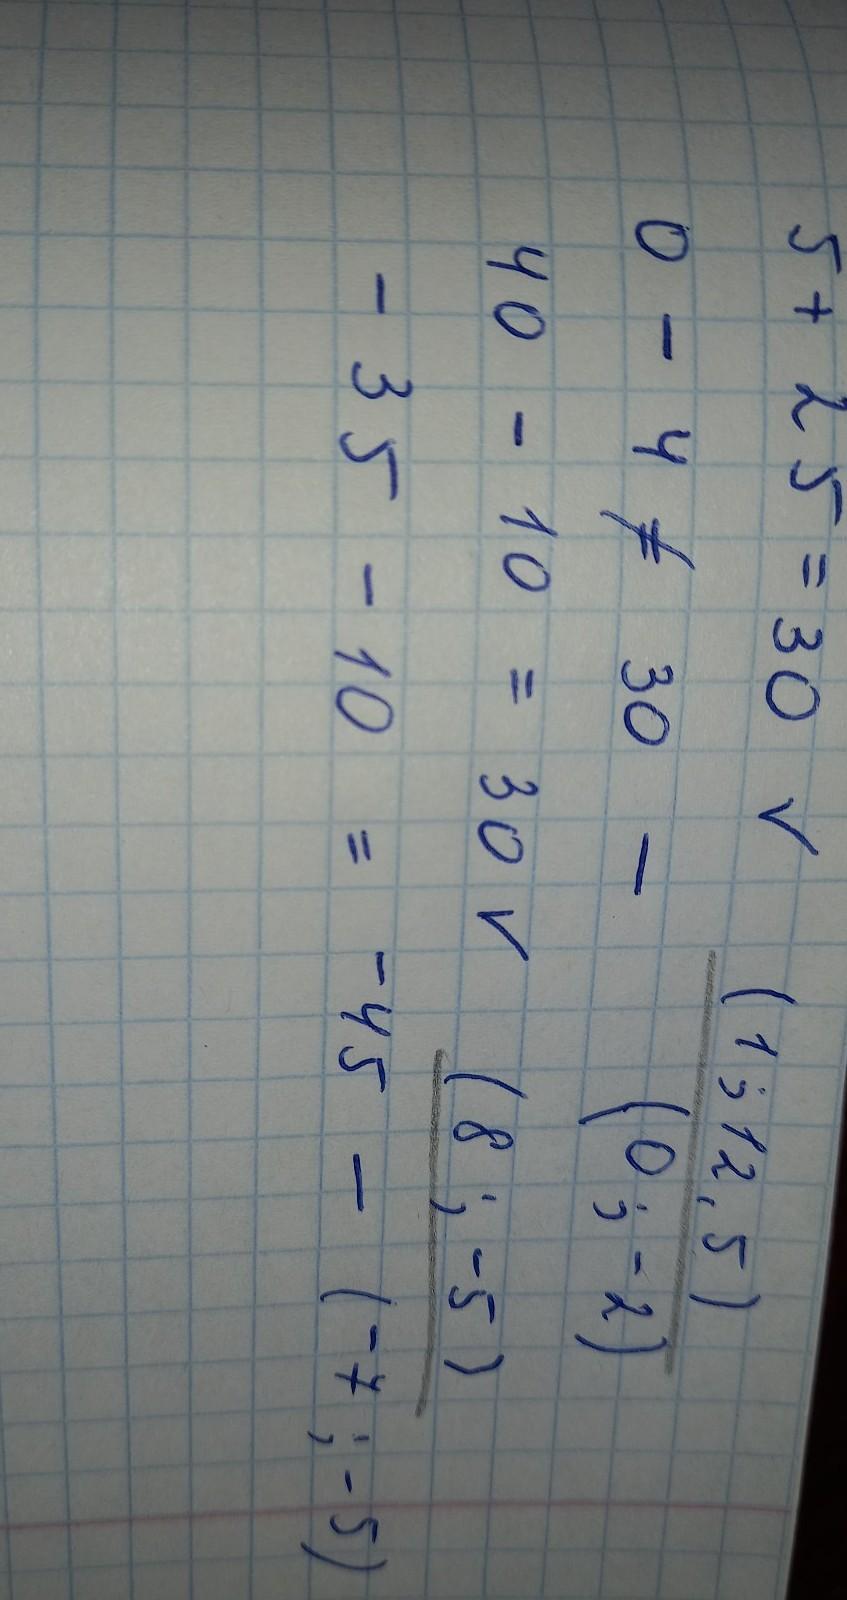 5 + 25 = 30 ✓ (1; 12,5)
0 - 4 ≠ 30 - (0; -2)
40 - 10 = 30 ✓ (8; -5)
- 35 - 10 = -45 - (-7; -5)